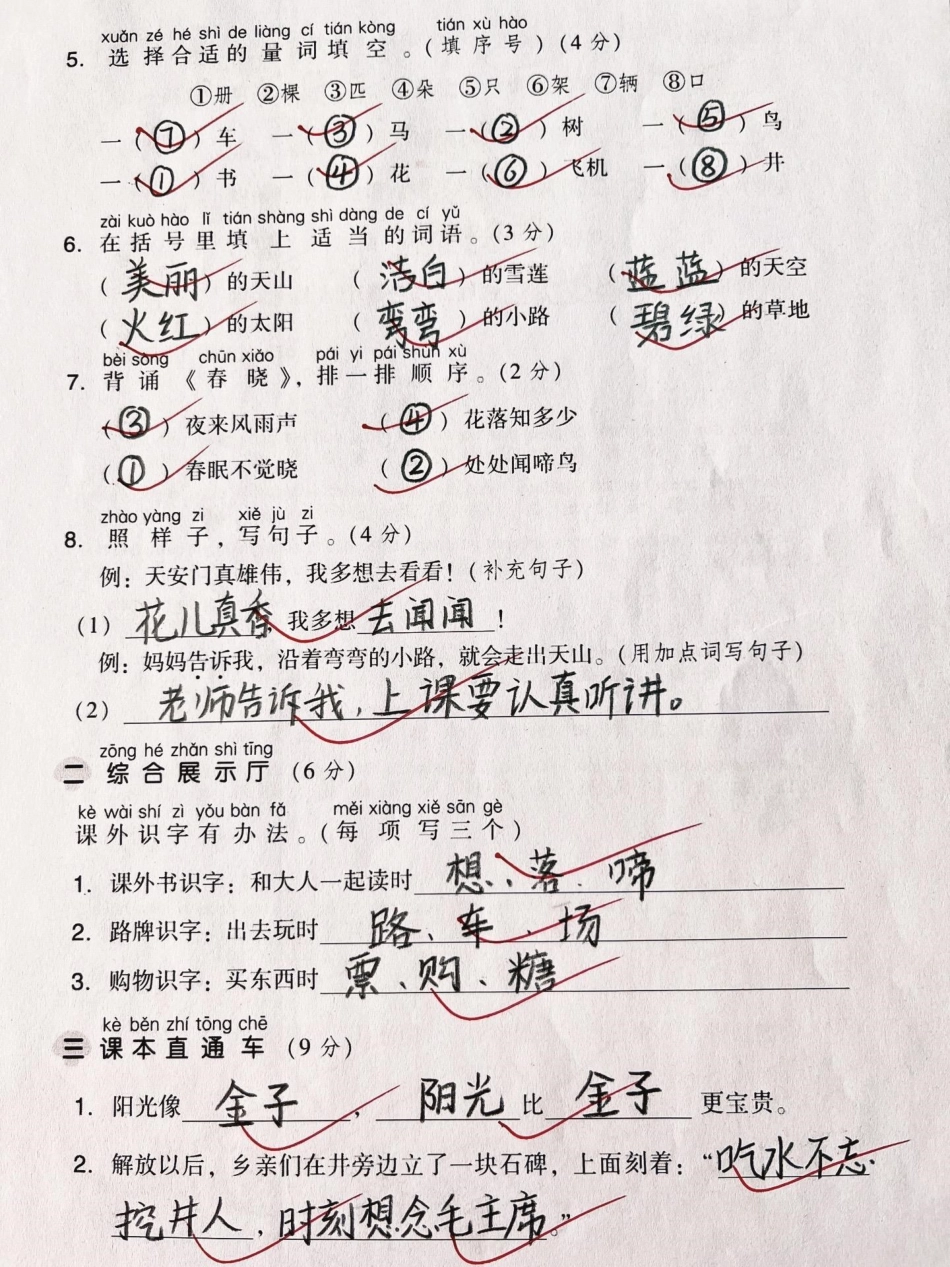 xuǎn zé hé shì de liàng cí tián kòng tián xù hào
5. 选择合适的量词填空。(填序号)(4分)
①册 ②棵 ③匹 ④朵 ⑤只 ⑥架 ⑦辆 ⑧口
一(⑦)车 一(③)马 一(②)树 一(⑤)鸟
一(①)书 一(④)花 一(⑥)飞机 一(⑧)井
zài kuò hào lǐ tián shàng shì dàng de cí yǔ
6. 在括号里填上适当的词语。(3分)
(美丽)的天山 (洁白)的雪莲 (蓝蓝)的天空
(火红)的太阳 (弯弯)的小路 (碧绿)的草地
bèi sòng chūn xiǎo pái yi pái shùn xù
7. 背诵《春晓》,排一排顺序。(2分)
(③)夜来风雨声 (④)花落知多少
(①)春眠不觉晓 (②)处处闻啼鸟
zhào yàng zi xiě jù zi
8. 照样子,写句子。(4分)
例:天安门真雄伟,我多想去看看!(补充句子)
(1)花儿真香,我多想去闻闻!
例:妈妈告诉我,沿着弯弯的小路,就会走出天山。(用加点词写句子)
(2)老师告诉我,上课要认真听讲。
zōng hé zhǎn shì tīng
二 综合展示厅(6分)
kè wài shí zì yǒu bàn fǎ měi xiàng xiě sān gè
课外识字有办法。(每项写三个)
1. 课外书识字:和大人一起读时想、落、啼
2. 路牌识字:出去玩时路、车、场
3. 购物识字:买东西时票、购、糖
kè běn zhí tōng chē
三 课本直通车(9分)
1. 阳光像金子,阳光比金子更宝贵。
2. 解放以后,乡亲们在井旁边立了一块石碑,上面刻着:“吃水不忘
挖井人,时刻想念毛主席。”